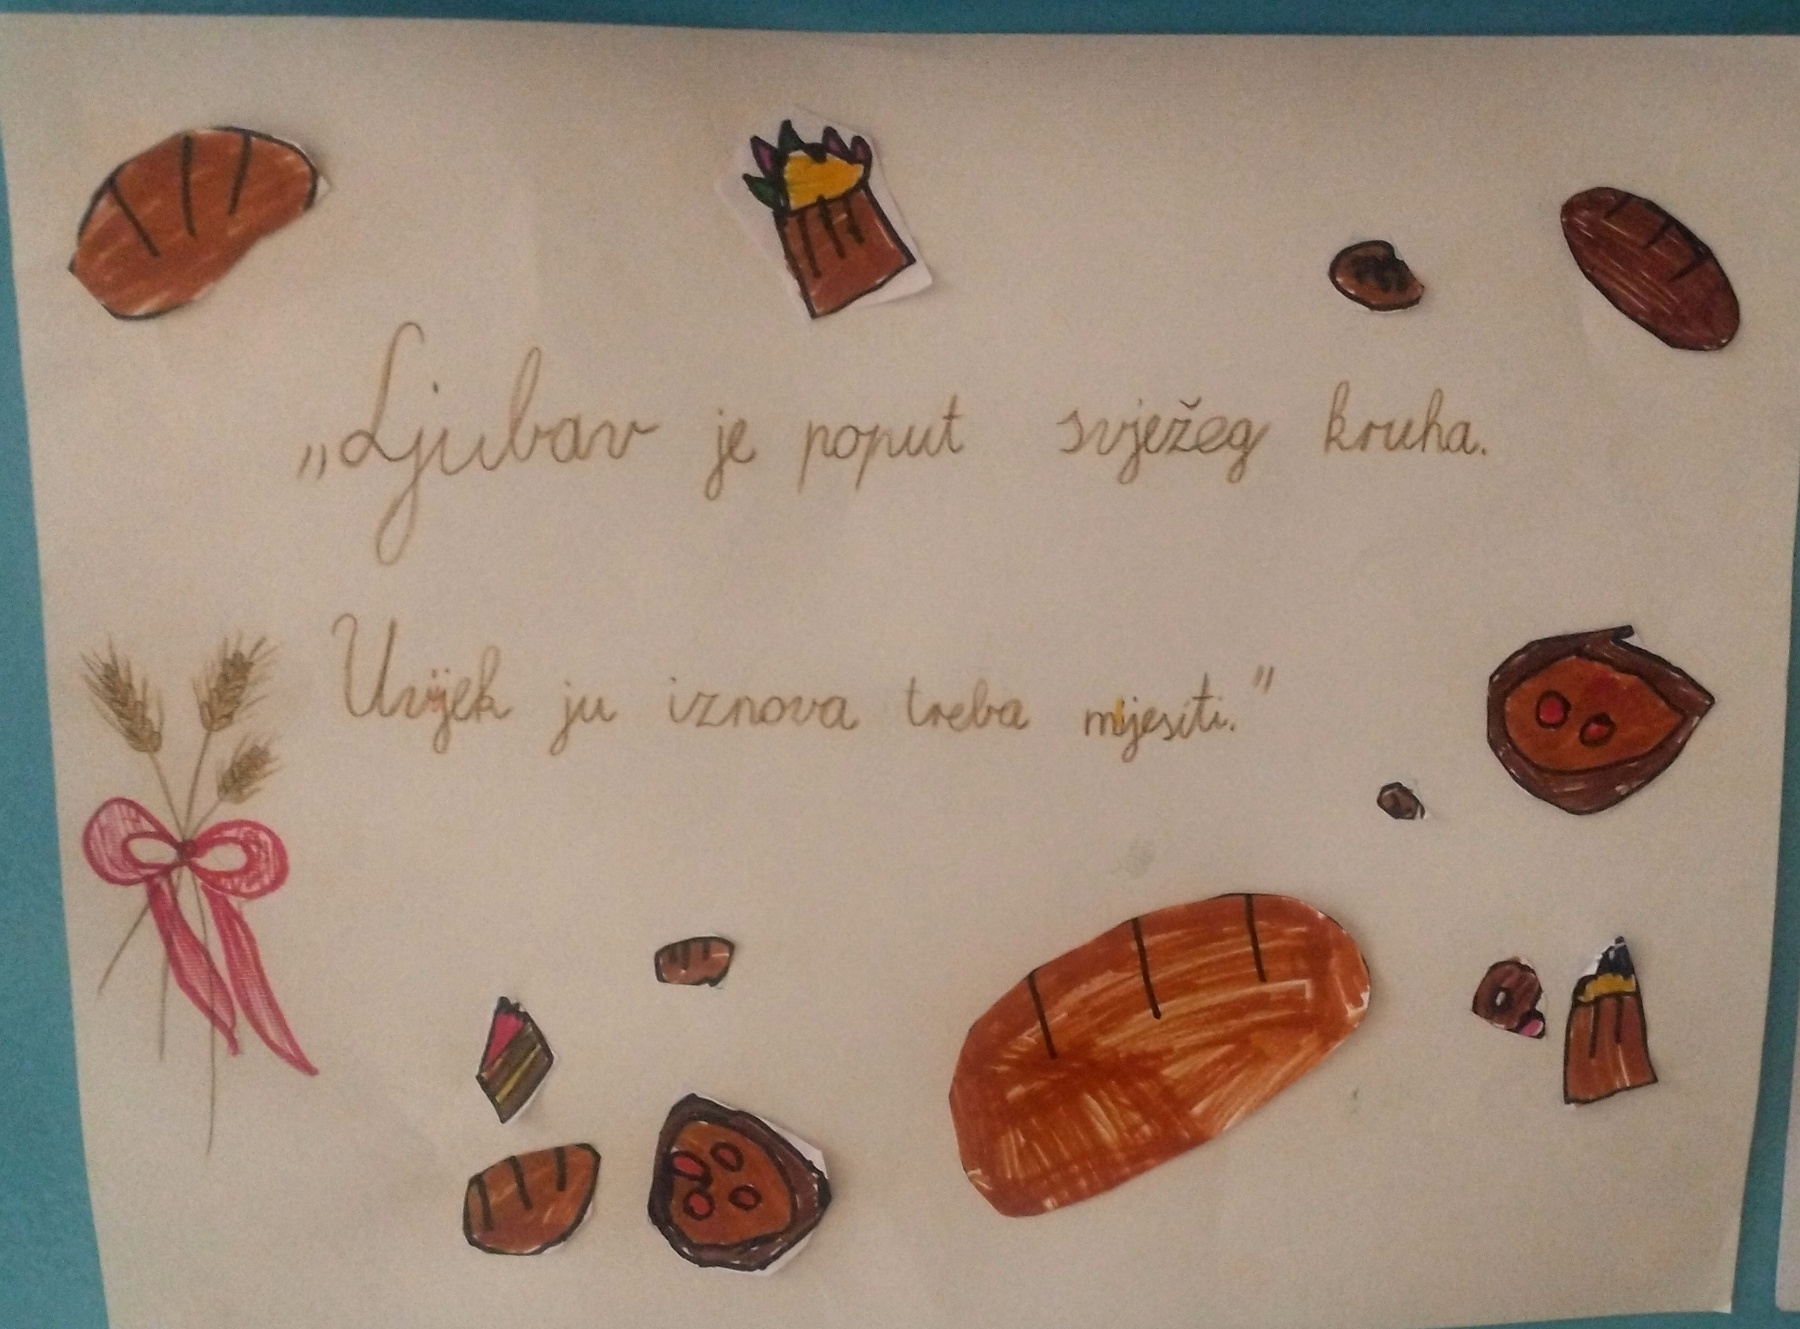 „Ljubav je poput svježeg kruha.
Uvijek ju iznova treba mijesiti."